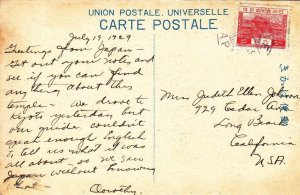 UNION POSTALE UNIVERSELLE
CARTE POSTALE
July 19, 1929
Greetings from Japan –
Get out your notes and
see if you can find
any thing about this
temple – We drove to
Kyoto yesterday but
our guide couldn't
speak enough English
to tell us what it was
all about. so we saw
Japan without knowing
Dorothy
Miss Judith Ellen Johnson
929 Cedar Ave
Long Beach
California
U.S.A.